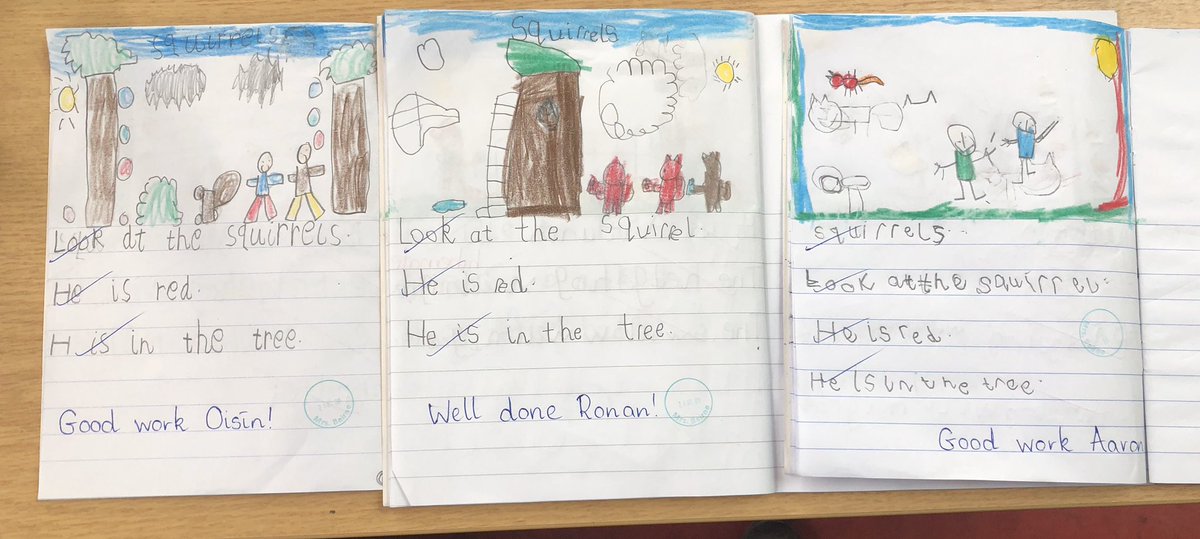 squirrels
Look at the squirrels.
He is red.
H is in the tree.
Good work Oisín!
Squirrels
Look at the squirel.
He is red.
He is in the tree.
Well done Ronan!
squirrels.
Look at the squirrel.
He is red.
He is in the tree.
Good work Aaron